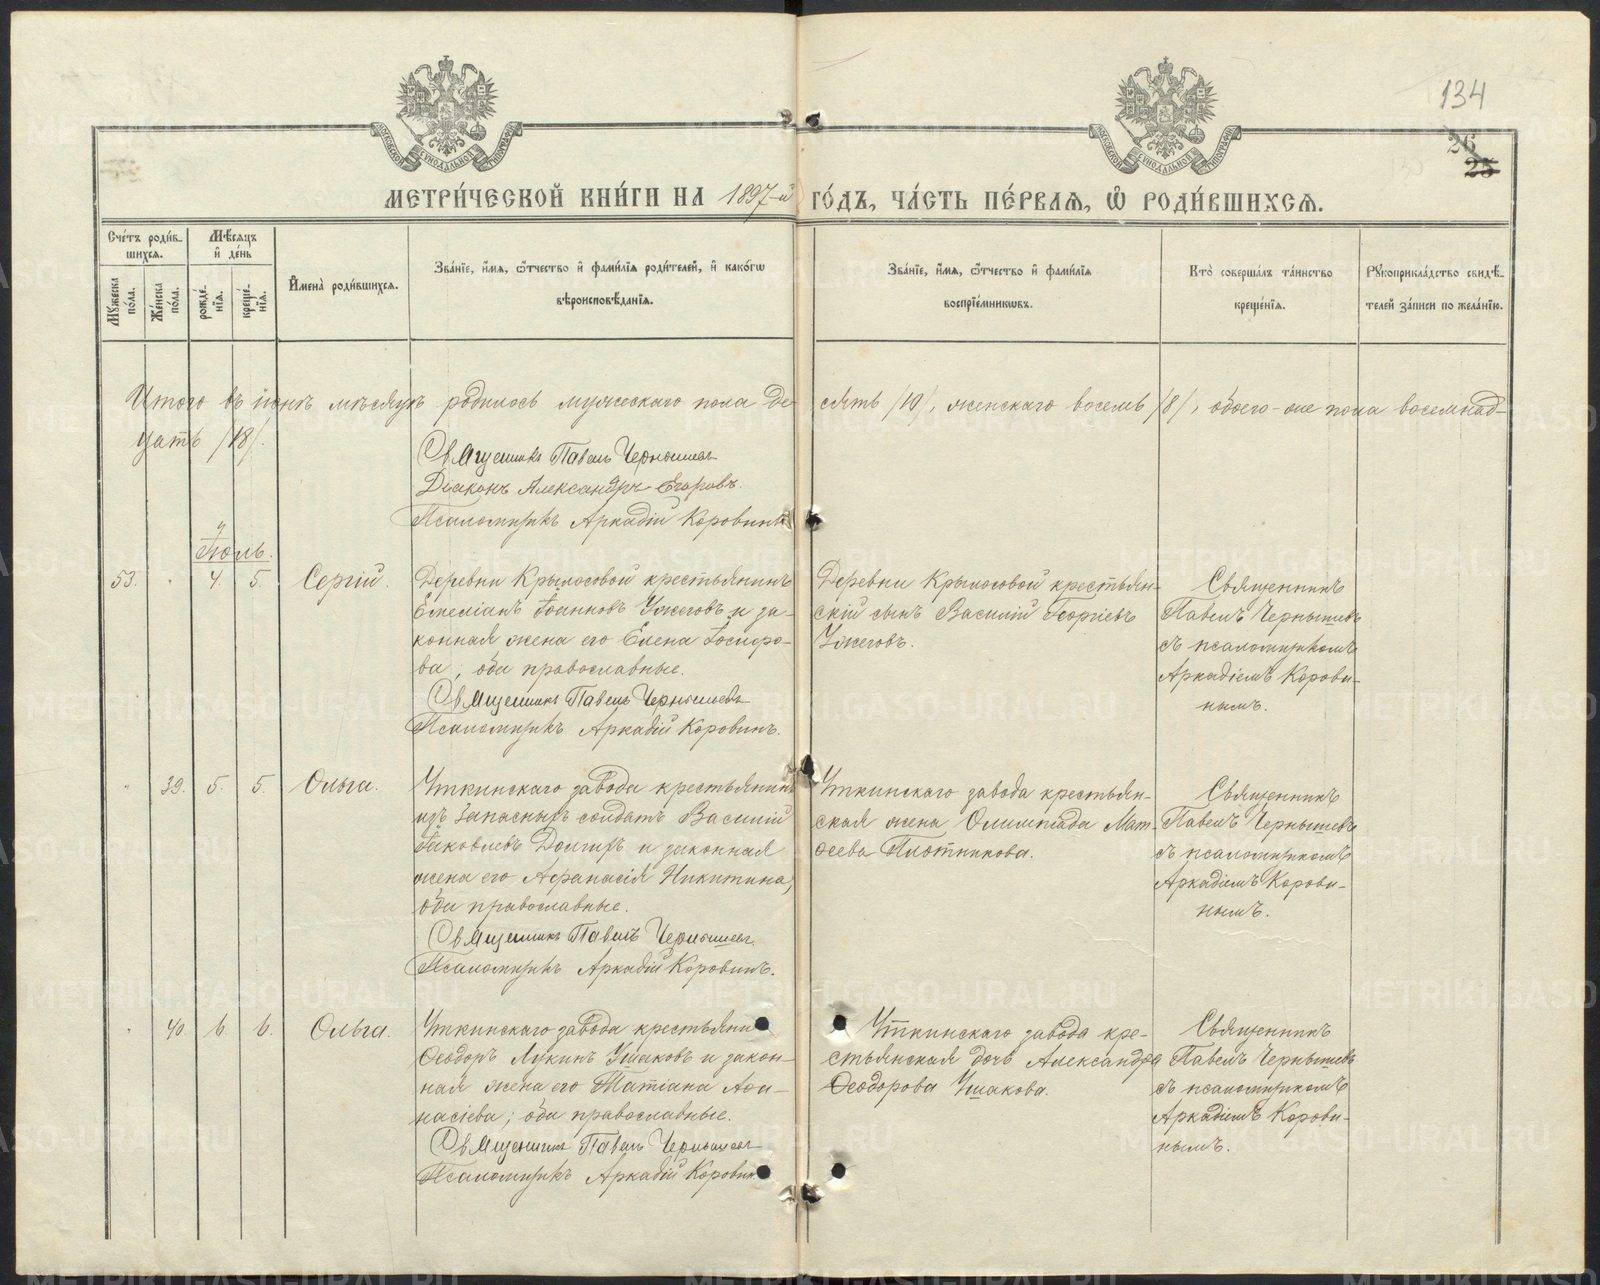 134
26
25
МОСКОВСКОЙ СѴНОДАЛЬНОЙ ТИПОГРАФІИ
МОСКОВСКОЙ СѴНОДАЛЬНОЙ ТИПОГРАФІИ
МЕТРИ́ЧЕСКОЙ КНИ́ГИ НА 1897-й ГО́ДЪ, ЧА́СТЬ ПЕ́РВАЯ, Ѡ҆ РОДИ́ВШИХСЯ.
Сче́тъ роди́в-
шихся.
Мꙋжеска по́ла.
Же́нска по́ла.
Мѣ́сяцъ
и҆ де́нь
рожде́-
нїя.
креще́-
нїя.
И҆мена̀ роди́вшихся.
Зва́нїе, и҆́мя, ѻ҆́тчество и҆ фами́лїя роди́телей, и҆ како́гѡ
вѣроисповѣ́данїя.
Зва́нїе, и҆́мя, ѻ҆́тчество и҆ фами́лїя
воспрїе́мникѡвъ.
Кто̀ соверша́лъ та́инство
креще́нїя.
Рꙋкоприкла́дство свидѣ́-
телей за́писи по жела́нїю.
Итого въ іюнѣ мѣсяцѣ родилось мужескаго пола де- сять /10/, женскаго восемь /8/, обоего-же пола восемнад-
цать /18/.
Священникъ Павелъ Чернышевъ
Діаконъ Александръ Егоровъ.
Псаломщикъ Аркадій Коровинъ
Іюль.
53. " 4. 5. Сергій.
Деревни Крылосовой крестьянинъ
Емеліанъ Іоанновъ Ужеговъ и за-
конная жена его Елена Іосифо-
ва; оба православные.
Священникъ Павелъ Чернышевъ
Псаломщикъ Аркадій Коровинъ.
Деревни Крылосовой крестьян-
скій сынъ Василій Георгіевъ
Ужеговъ.
Священникъ
Павелъ Чернышевъ
съ псаломщикомъ
Аркадіемъ Корови-
нымъ.
" 39. 5. 5. Ольга.
Уткинскаго завода крестьянинъ
изъ запасныхъ солдатъ Василій
Іаковлевъ Долгихъ и законная
жена его Афанасія Никитина,
оба православные.
Священникъ Павелъ Чернышевъ
Псаломщикъ Аркадій Коровинъ.
Уткинскаго завода крестьян-
ская жена Олимпіада Мат-
ѳеева Плотникова.
Священникъ
Павелъ Чернышевъ
съ псаломщикомъ
Аркадіемъ Корови-
нымъ.
" 40 6. 6. Ольга.
Уткинскаго завода крестьяни
Ѳеодоръ Лукинъ Ушаковъ и закон-
ная жена его Татіана Аѳа-
насіева; оба православные.
Священникъ Павелъ Чернышевъ
Псаломщикъ Аркадій Коровин
Уткинскаго завода кре-
стьянская дочь Александра
Ѳеодорова Ушакова.
Священникъ
Павелъ Чернышевъ
съ псаломщикомъ
Аркадіемъ Корови-
нымъ.
METRIKI.GASO-URAL.RU